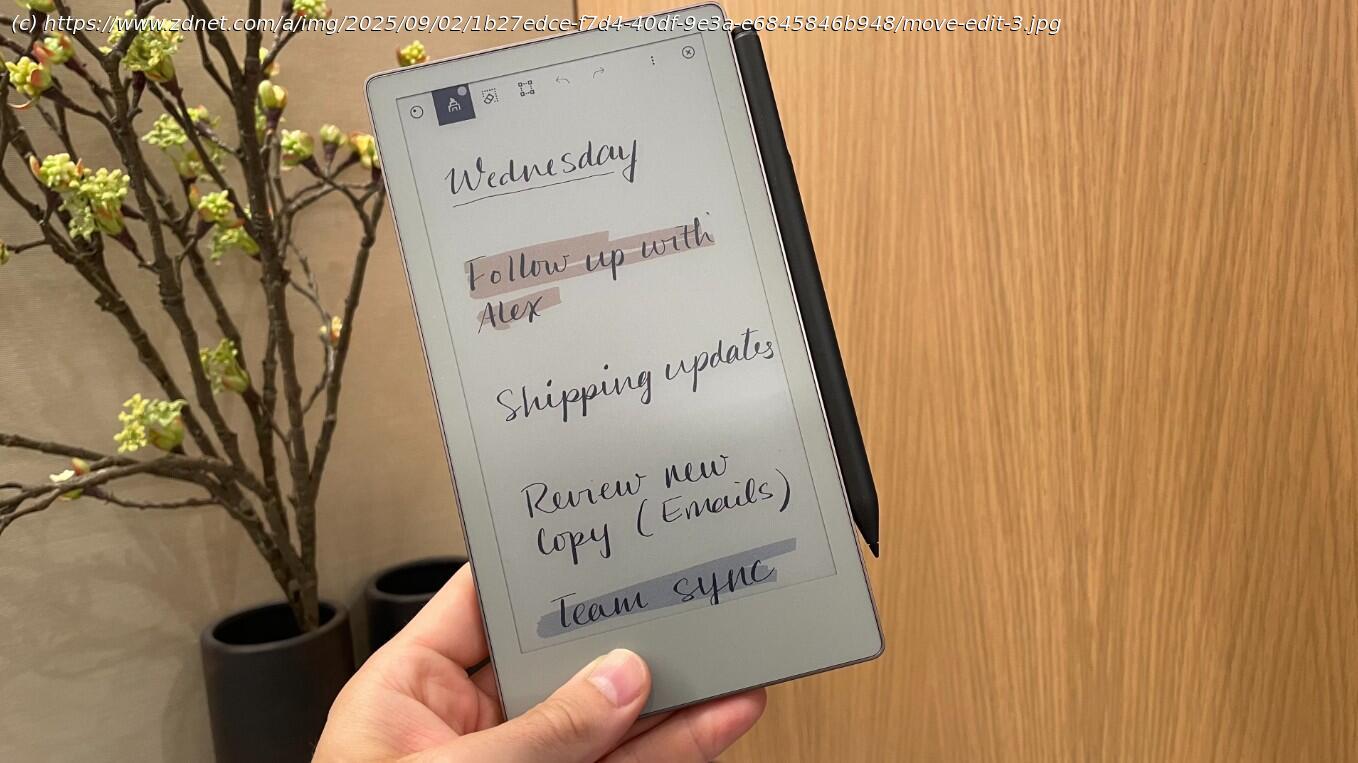 (c) https://www.zdnet.com/a/img/2025/09/02/1b27edce-f7d4-40df-9e3a-e6845846b948/move-edit-3.jpg
Wednesday
Follow up with
Alex
Shipping updates
Review new
Copy (Emails)
Team sync